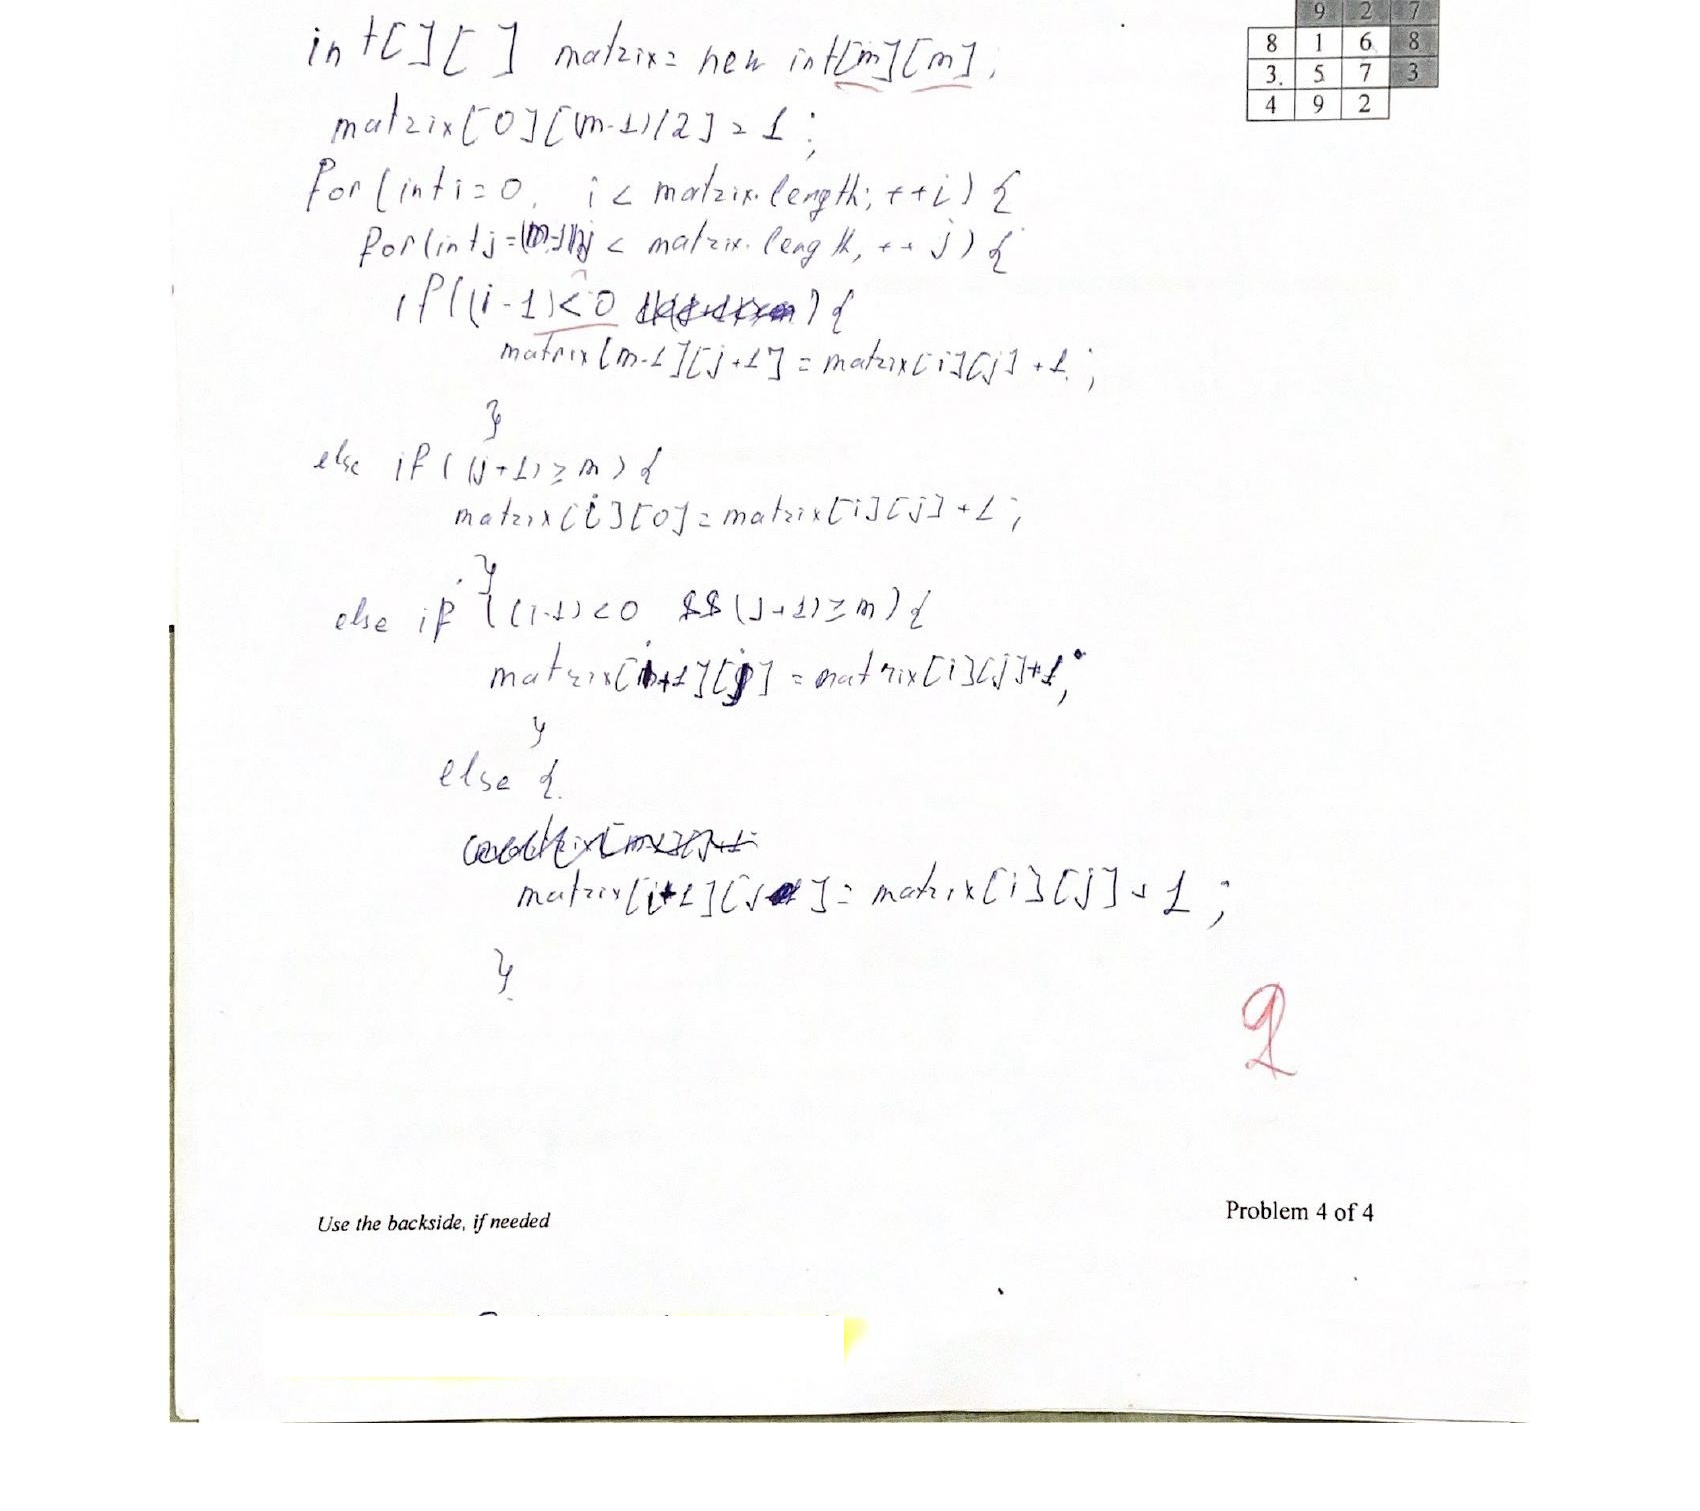 9 2 7
8 1 6 8
3. 5 7 3
4 9 2
int[][] matrix = new int[m][m];
matrix[0][(m-1)/2] = 1;
for(int i=0, i < matrix.length; ++i) {
for(int j = < matrix.length, ++j) {
if((i-1)<0 ) {
matrix[m-1][j+1] = matrix[i][j] +1;
}
else if((j+1)≥m) {
matrix[i][0] = matrix[i][j] +1;
}
else if ((i-1)<0 && (j+1)≥m) {
matrix[i+1][j] = matrix[i][j]+1;
}
else {
matrix[i+1][j] = matrix[i][j]+1;
}
2
Use the backside, if needed
Problem 4 of 4